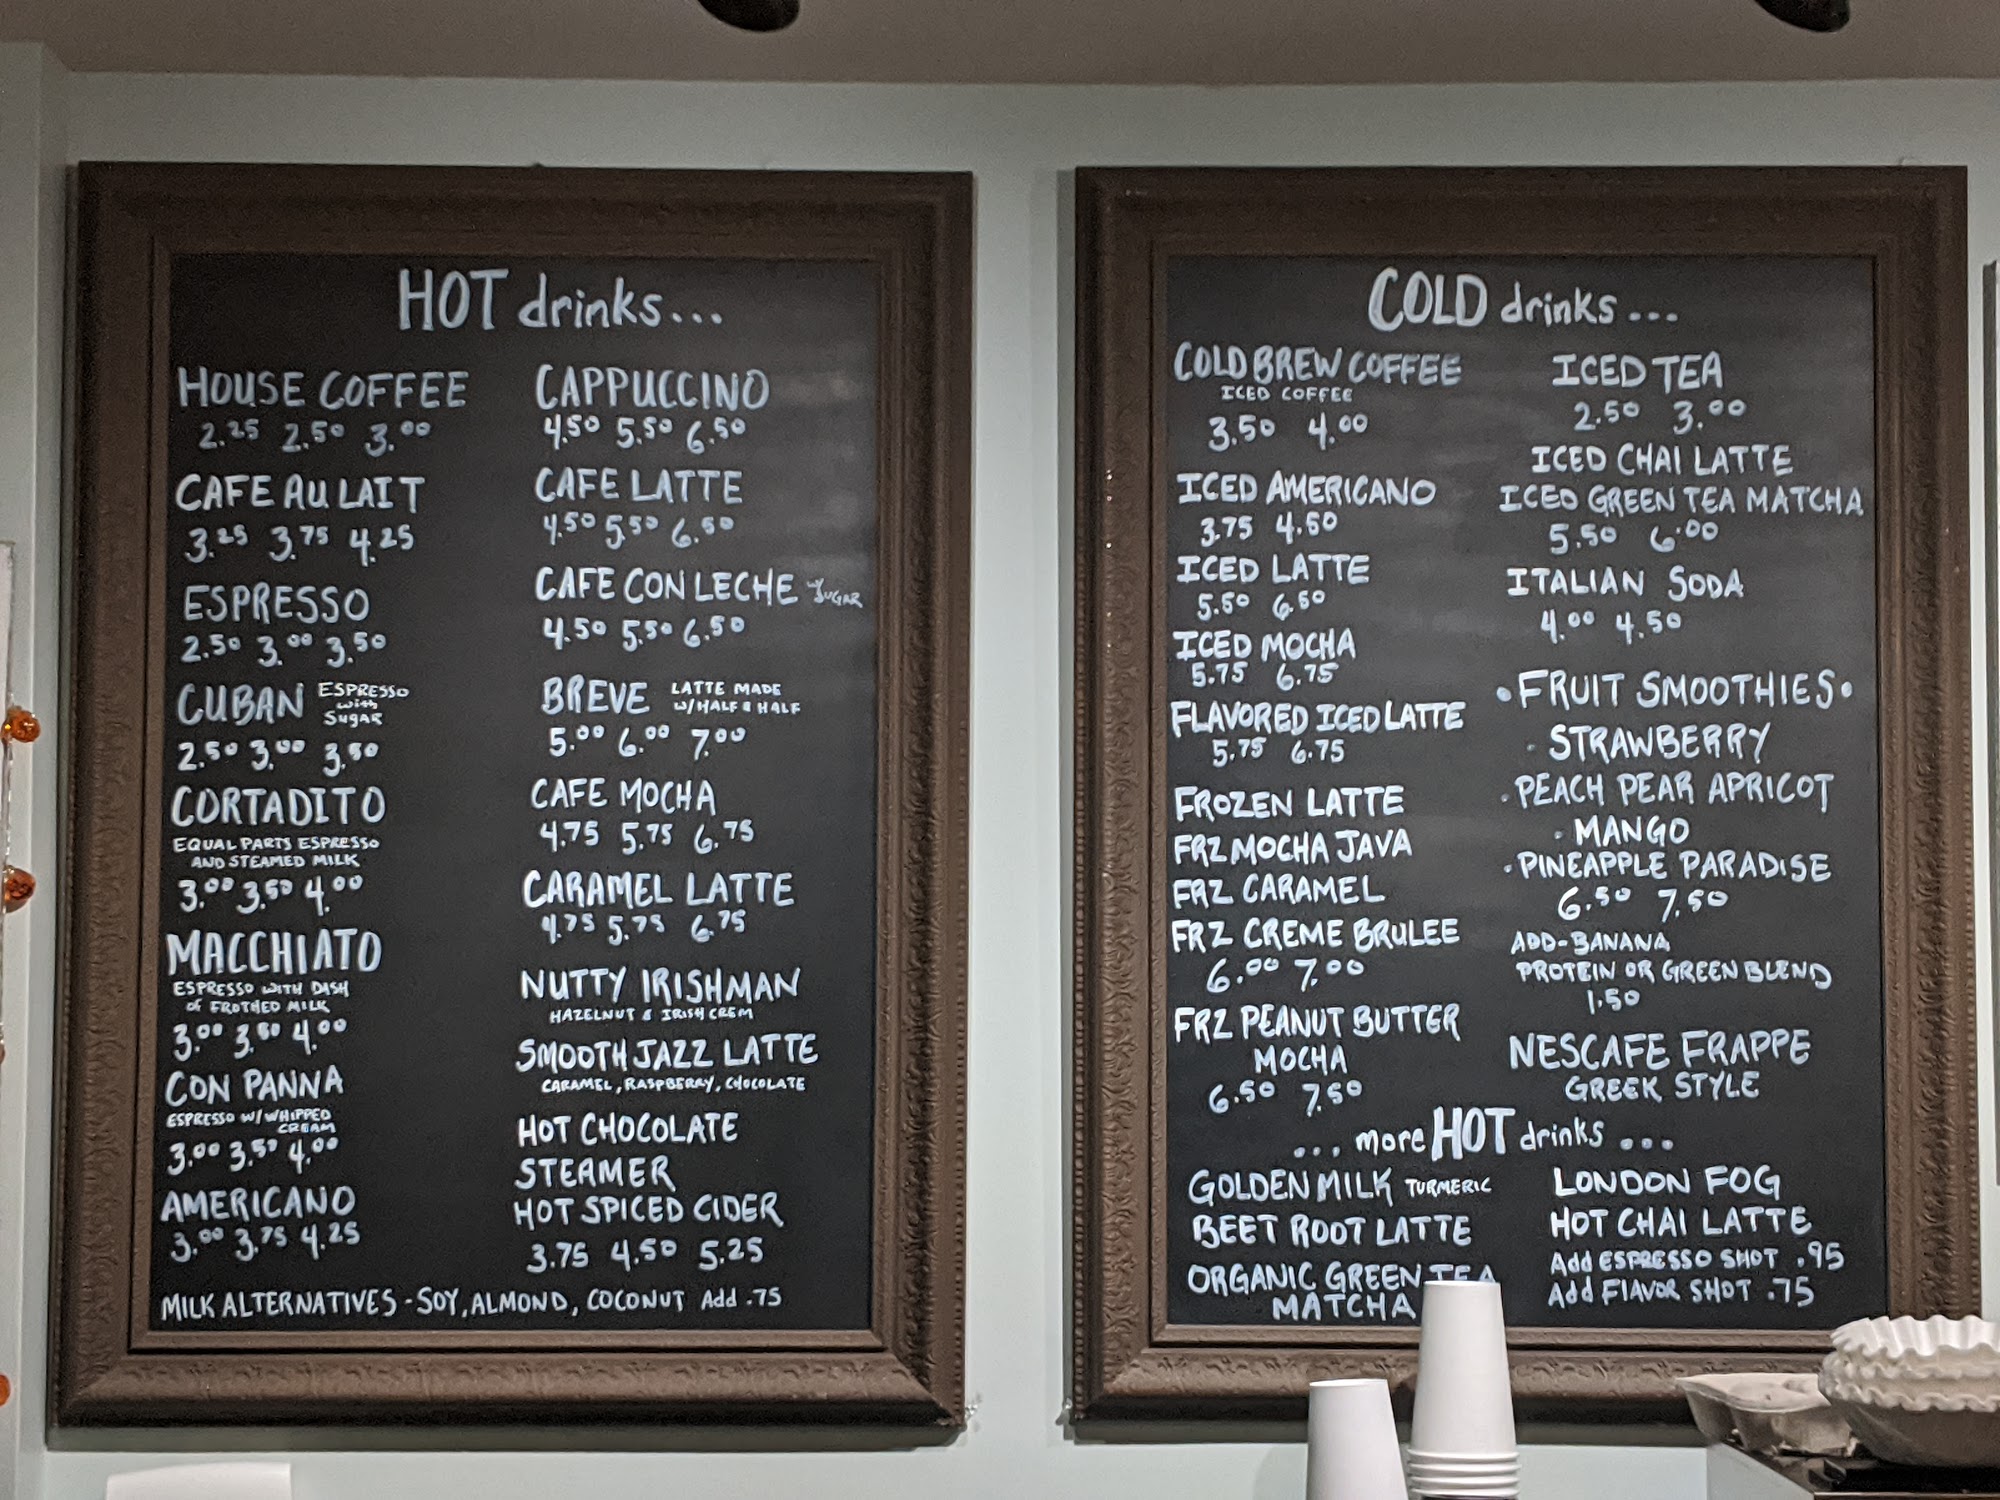 HOT drinks...
HOUSE COFFEE
2.25 2.50 3.00
CAFE AU LAIT
3.25 3.75 4.25
ESPRESSO
2.50 3.00 3.50
CUBAN ESPRESSO
with
SUGAR
2.50 3.00 3.50
CORTADITO
EQUAL PARTS ESPRESSO
AND STEAMED MILK
3.00 3.50 4.00
MACCHIATO
ESPRESSO WITH DASH
of FROTHED MILK
3.00 3.50 4.00
CON PANNA
ESPRESSO W/ WHIPPED
CREAM
3.00 3.50 4.00
AMERICANO
3.00 3.75 4.25
CAPPUCCINO
4.50 5.50 6.50
CAFE LATTE
4.50 5.50 6.50
CAFE CON LECHE w/
SUGAR
4.50 5.50 6.50
BREVE LATTE MADE
W/ HALF & HALF
5.00 6.00 7.00
CAFE MOCHA
4.75 5.75 6.75
CARAMEL LATTE
4.75 5.75 6.75
NUTTY IRISHMAN
HAZELNUT & IRISH CREM
SMOOTH JAZZ LATTE
CARAMEL, RASPBERRY, CHOCOLATE
HOT CHOCOLATE
STEAMER
HOT SPICED CIDER
3.75 4.50 5.25
MILK ALTERNATIVES - SOY, ALMOND, COCONUT Add .75
COLD drinks...
COLD BREW COFFEE
ICED COFFEE
3.50 4.00
ICED AMERICANO
3.75 4.50
ICED LATTE
5.50 6.50
ICED MOCHA
5.75 6.75
FLAVORED ICED LATTE
5.75 6.75
FROZEN LATTE
FRZ MOCHA JAVA
FRZ CARAMEL
FRZ CREME BRULEE
6.00 7.00
FRZ PEANUT BUTTER
MOCHA
6.50 7.50
ICED TEA
2.50 3.00
ICED CHAI LATTE
ICED GREEN TEA MATCHA
5.50 6.00
ITALIAN SODA
4.00 4.50
• FRUIT SMOOTHIES •
· STRAWBERRY
· PEACH PEAR APRICOT
· MANGO
· PINEAPPLE PARADISE
6.50 7.50
ADD-BANANA
PROTEIN OR GREEN BLEND
1.50
NESCAFE FRAPPE
GREEK STYLE
... more HOT drinks ...
GOLDEN MILK TURMERIC
BEET ROOT LATTE
ORGANIC GREEN TEA
MATCHA
LONDON FOG
HOT CHAI LATTE
Add ESPRESSO SHOT .95
Add FLAVOR SHOT .75